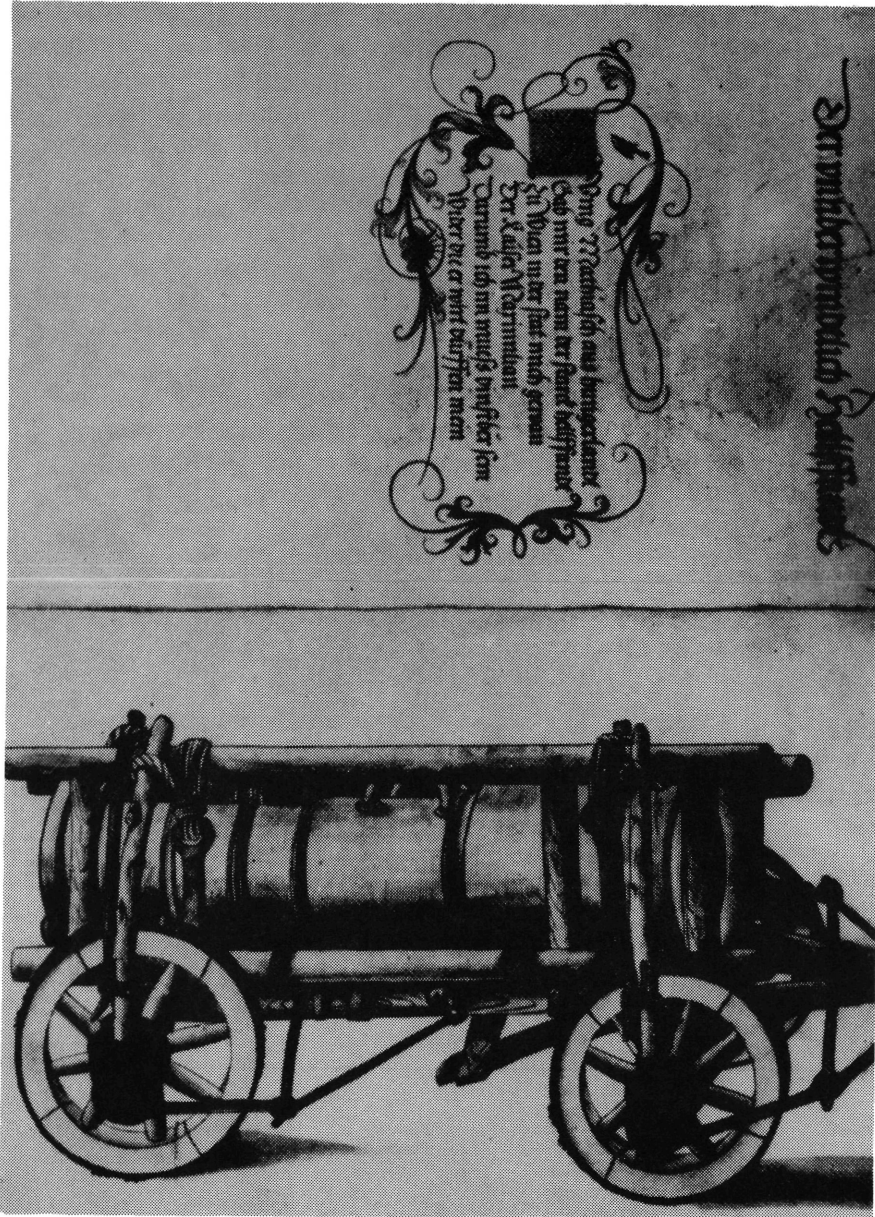 Der unüberwindlich Helffstandt
Kunig Mathiasch aus hungerlandt
Gab mir den nam der stand helff stande
Zu Wien in der stat mich gewan
Der kaiser Maximilian
Darumb ich im muess dinstber sein
Wider die er wirt dürffen mein